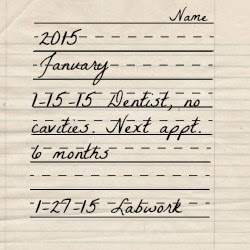 Name
2015
January
1-15-15 Dentist, no
cavities. Next appt.
6 months
1-27-15 Labwork